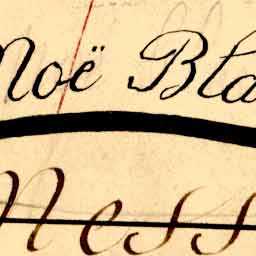 Noë Bla
Ness